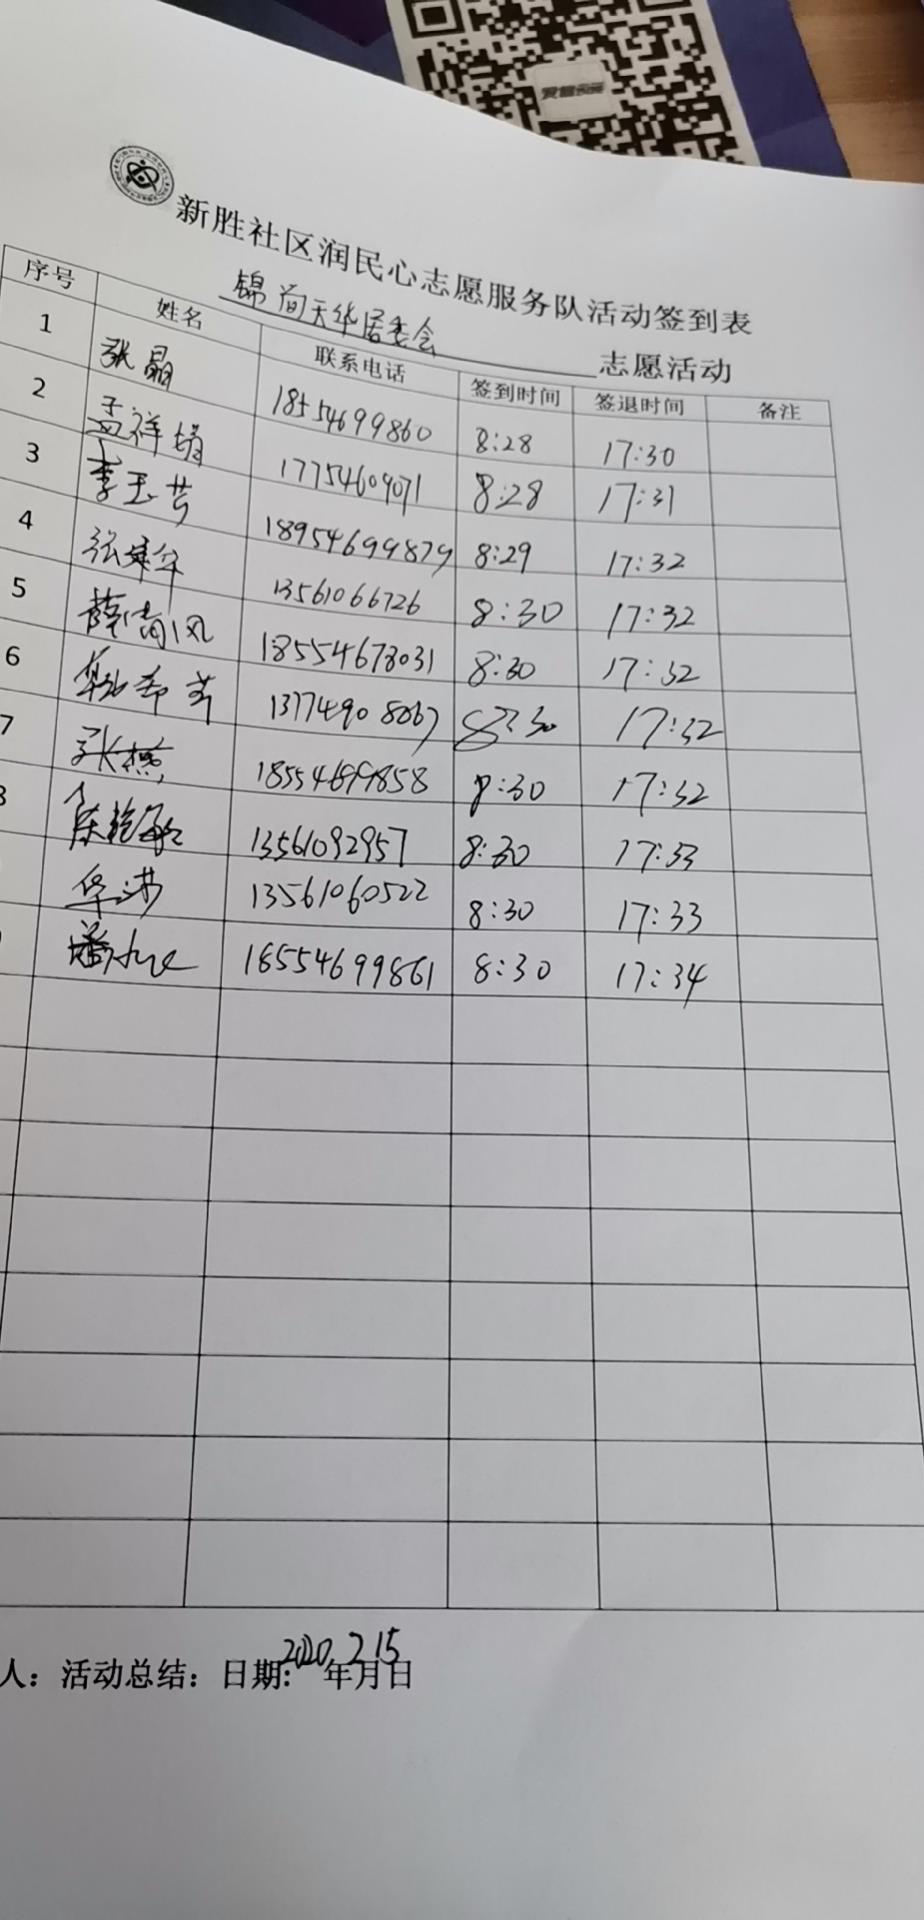 新胜社区润民心志愿服务队活动签到表
锦润天华居委会 志愿活动
序号 姓名 联系电话 签到时间 签退时间 备注
1 张晶 18554699860 8:28 17:30
2 孟祥娟 17754609071 8:28 17:31
3 李玉芳 18954699879 8:29 17:32
4 张建华 13561066726 8:30 17:32
5 薛清风 18554673031 8:30 17:32
6 13774908067 8:30 17:32
7 张燕 18554699858 8:30 17:32
陈艳敏 13561092957 8:30 17:33
华涛 13561060522 8:30 17:33
18554699861 8:30 17:34
人：活动总结：日期：2020年2月15日